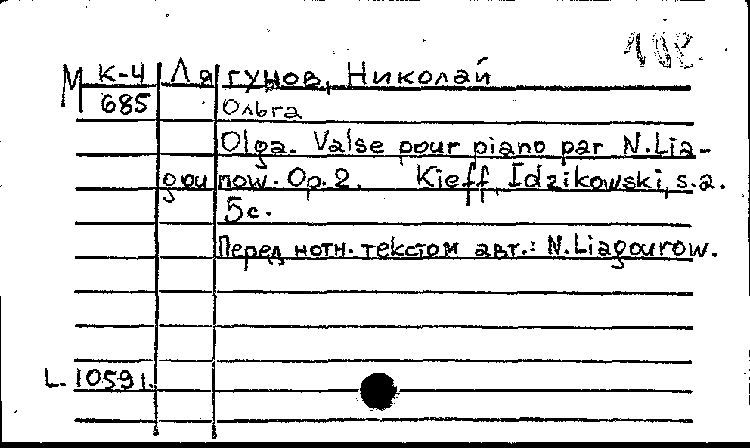 М К-4 Лягунов, Николай
685 Ольга
Olga. Valse pour piano par N.Lia-
gounow. Op. 2. Kieff, Idzikowski, s.a.
5с.
Перед нотн. текстом авт.: N.Liagourow.
L. 10591.